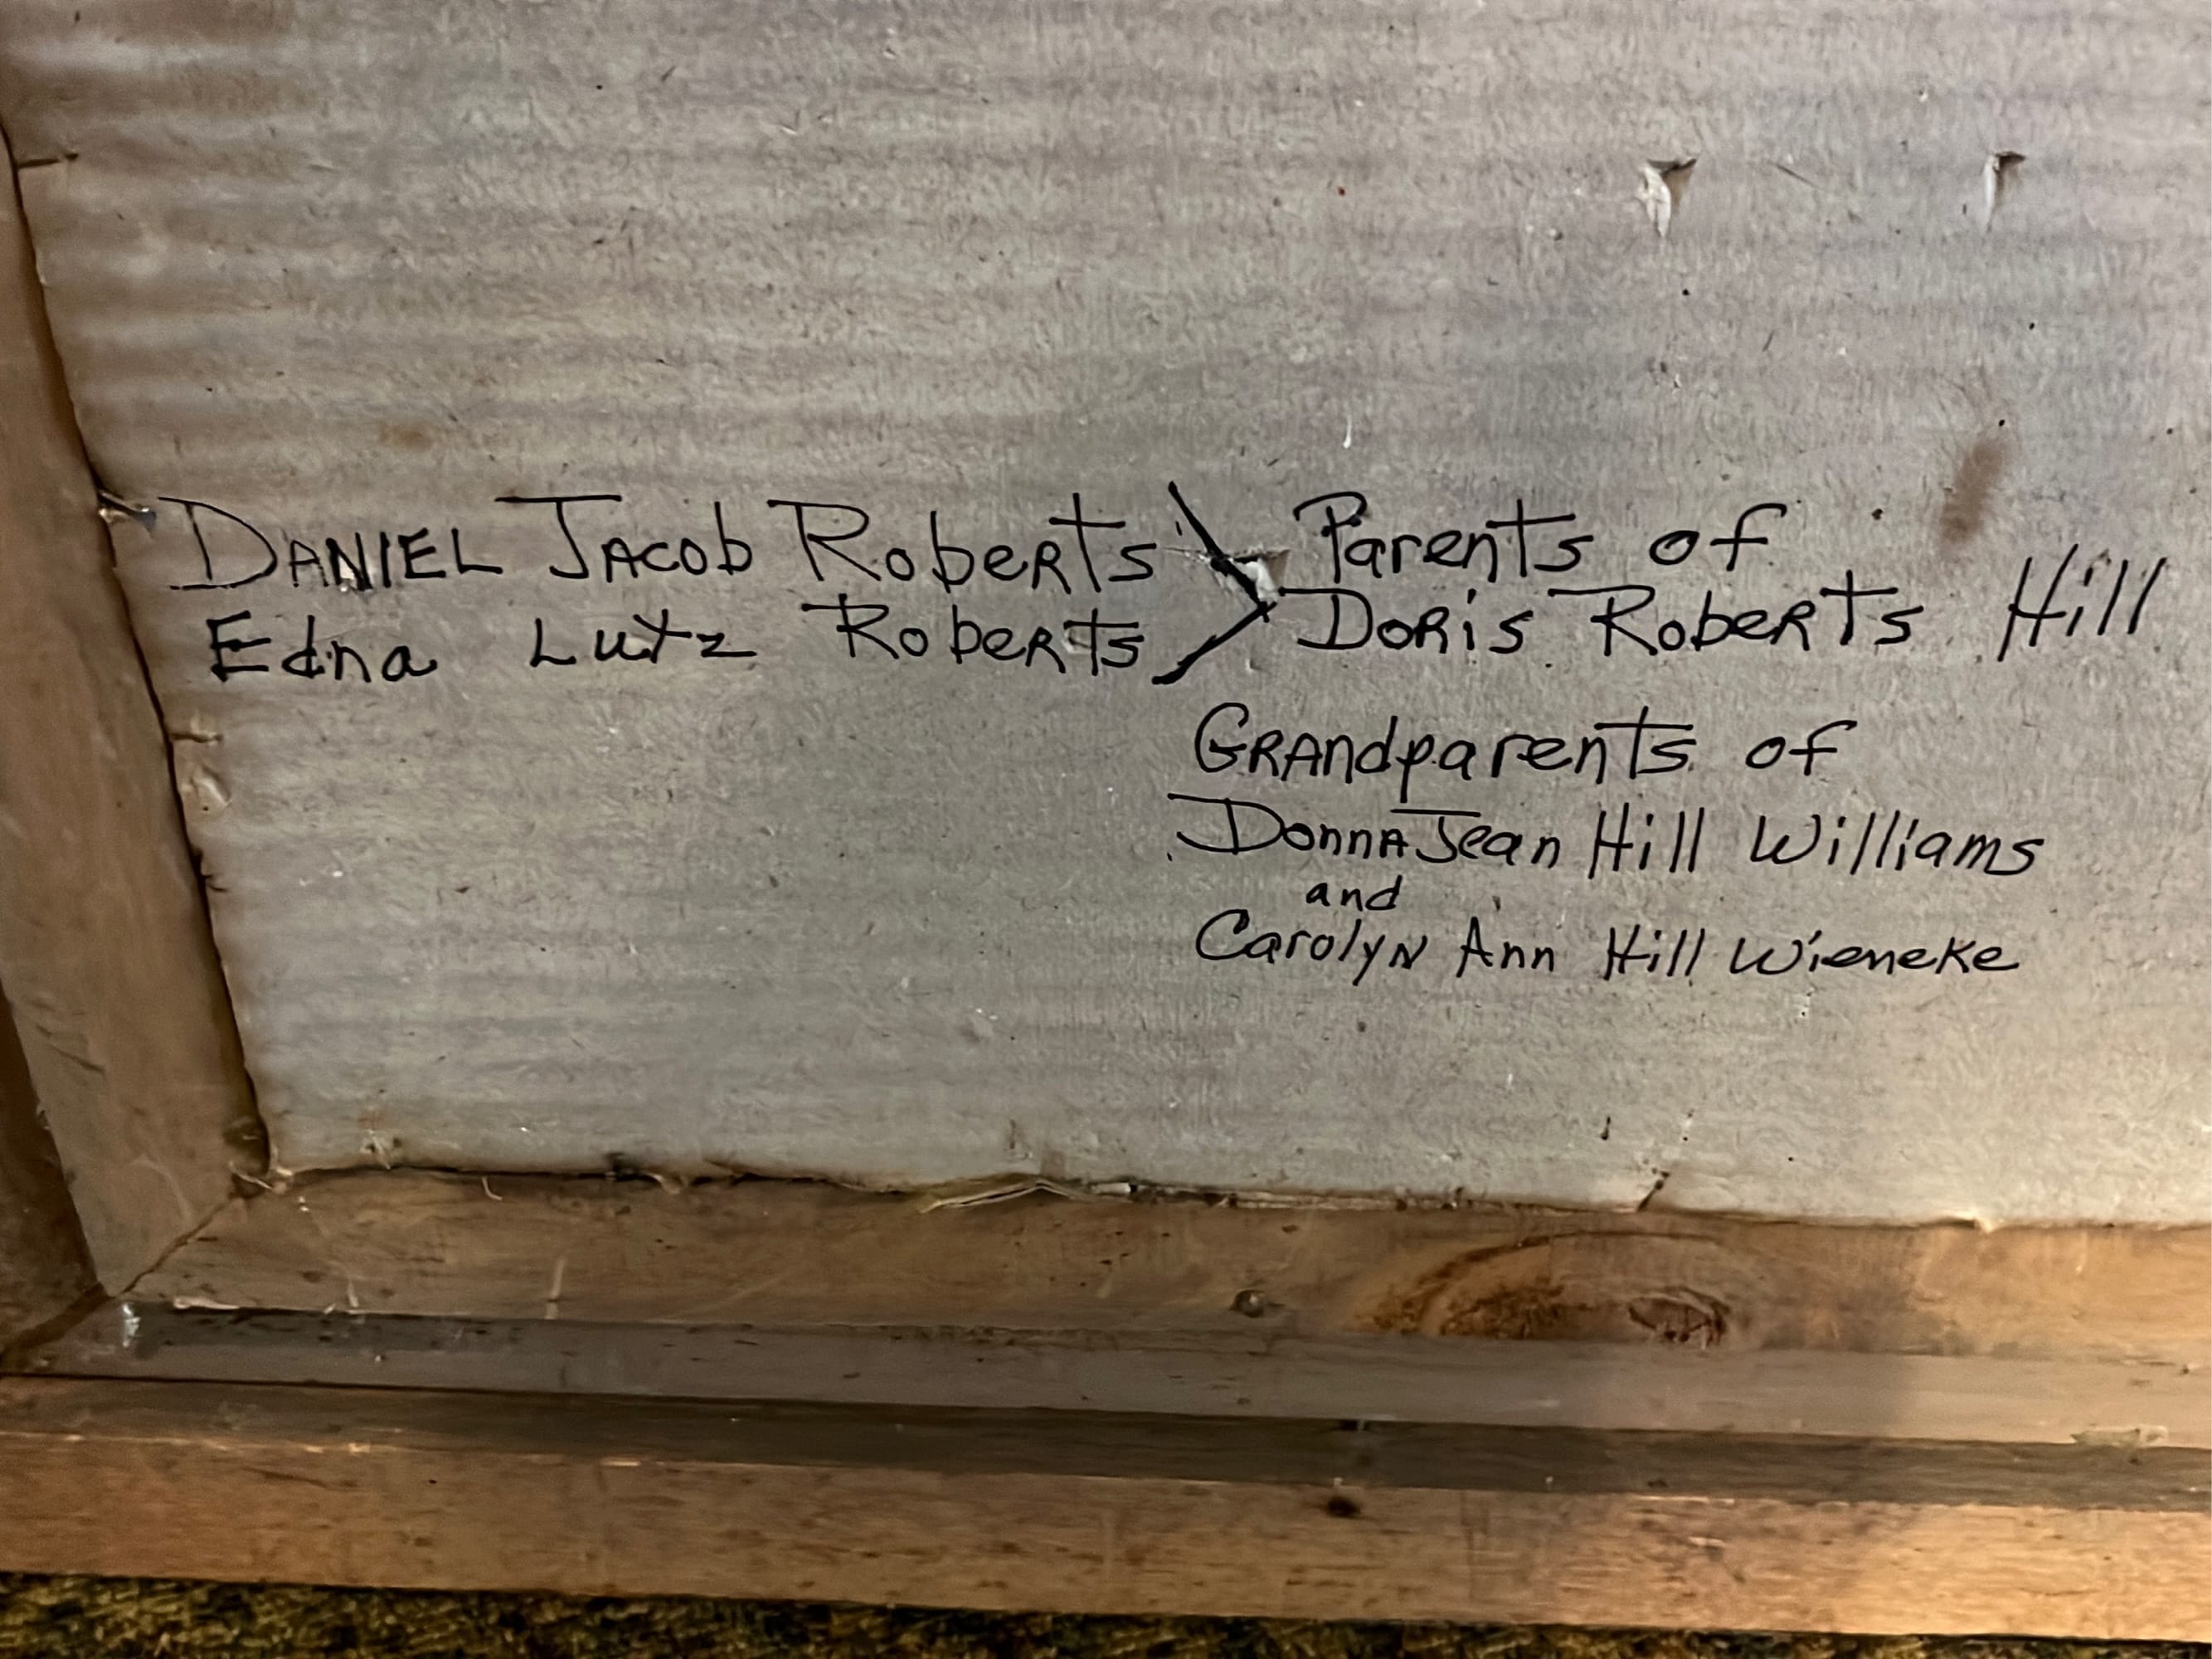 DANIEL JACOB ROBERTS > Parents of
Edna Lutz Roberts Doris Roberts Hill
Grandparents of
Donna Jean Hill Williams
and
Carolyn Ann Hill Wieneke